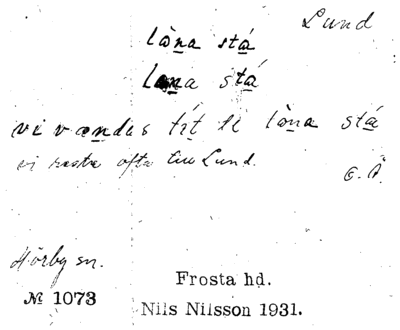 Lund
lòna stá
lona stá
vi vændes tít te lòna stá
vi reste ofta till Lund.
G. Å
Hörby sn.
№ 1073
Frosta hd.
Nils Nilsson 1931.